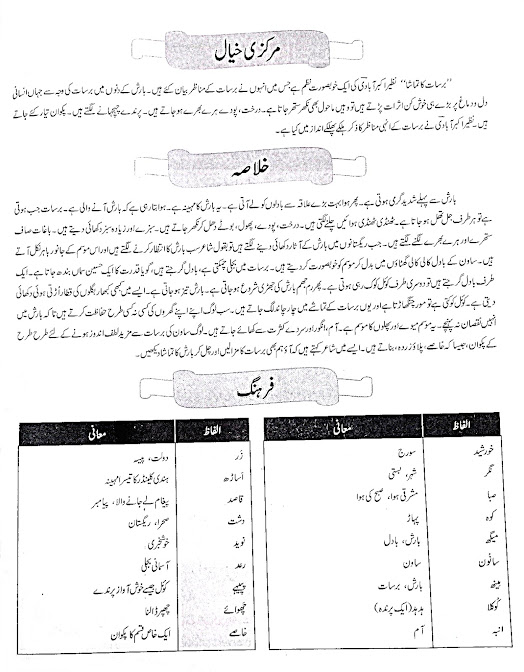 مرکزی خیال
"برسات کا تماشا" نظیر اکبر آبادی کی ایک خوبصورت نظم ہے جس میں انہوں نے برسات کے مناظر بیان کئے ہیں۔ بارش کے دنوں میں برسات کی وجہ سے جہاں انسانی
دل و دماغ پر بڑے ہی خوش کن اثرات پڑتے ہیں تو وہیں ماحول بھی نکھر ستھر جاتا ہے۔ درخت، پودے ہرے بھرے ہو جاتے ہیں۔ پرندے چہچہانے لگتے ہیں۔ پکوان تیار کئے جاتے
ہیں۔ نظیر اکبر آبادی نے برسات کے انہی مناظر کا ذکر ہلکے پھلکے انداز میں کیا ہے۔
خلاصہ
بارش سے پہلے شدید گرمی ہوتی ہے۔ پھر ہوا بہت بڑے علاقہ سے بادلوں کو لے آتی ہے۔ یہ بارش کا مہینہ ہے۔ ہوا بتا رہی ہے کہ بارش آنے والی ہے۔ برسات جب ہوتی
ہے تو ہر طرف جل تھل ہو جاتا ہے۔ ٹھنڈی ٹھنڈی ہوائیں چلنے لگتی ہیں۔ درخت، پودے، پھول، بوٹے دھل کر نکھر جاتے ہیں۔ سبزے اور زیادہ سبز دکھائی دیتے ہیں۔ باغات صاف
ستھرے اور ہرے بھرے لگنے لگتے ہیں۔ جب ریگستانوں میں بارش کے آثار دکھائی دینے لگتے ہیں تو بقول شاعر سب بارش کا انتظار کرنے لگتے ہیں اور اس موسم کے جانور باہر نکل آتے
ہیں۔ ساون کے بادل کالی کالی گھٹاؤں میں بدل کر موسم کو خوبصورت کر دیتے ہیں۔ برسات میں بجلی چمکتی ہے، بادل گرجتے ہیں، گویا قدرت کا ایک حسین سماں بندھ جاتا ہے۔ ایک
طرف بادل گرجتے ہیں تو دوسری طرف کوئل کوک رہی ہوتی ہے۔ پھر رم جھم بارش کی جھڑی شروع ہو جاتی ہے۔ بارش تیز ہو جاتی ہے۔ ایسے میں کبھی کبھار بگلوں کی قطار اڑتی ہوئی دکھائی
دیتی ہے۔ کوئل کوکتی ہے تو مور چنگھاڑتا ہے اور یوں برسات کے تماشے میں چار چاند لگ جاتے ہیں۔ سب لوگ اپنے اپنے گھروں کی کسی نہ کسی طرح حفاظت کرتے ہیں تاکہ بارش میں
انہیں نقصان نہ پہنچے۔ یہ موسم میوے اور پھلوں کا موسم ہے۔ آم، انگور اور سردے کثرت سے کھائے جاتے ہیں۔ لوگ ساون کی برسات سے مزید لطف اندوز ہونے کے لئے طرح طرح
کے پکوان، جیسا کہ خاصے، پلاؤ زردہ، بناتے ہیں۔ ایسے میں شاعر کہتے ہیں کہ آؤ ہم بھی برسات کا مزا لیں اور چل کر بارش کا تماشا دیکھیں۔
فرہنگ
الفاظ معانی
خورشید سورج
نگر شہر، بستی
صبا مشرقی ہوا، صبح کی ہوا
کوہ پہاڑ
میگھ بارش، بادل
سانون ساون
مینھ بارش، برسات
کوکلا ہدہد (ایک پرندہ)
انبہ آم
الفاظ معانی
زر دولت، پیسہ
اساڑھ ہندی کیلنڈر کا تیسرا مہینہ
قاصد پیغام لے جانے والا، پیامبر
دشت صحرا، ریگستان
نوید خوشخبری
رعد آسمانی بجلی
پپیہے کوئل جیسے خوش آواز پرندے
چھوائے چھپر ڈالنا
خاصے ایک خاص قسم کا پکوان